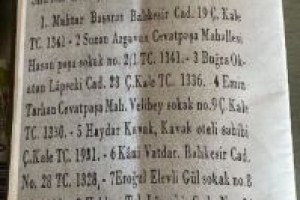 1. Muhtar Başaran Balıkesir Cad. 19 Ç.Kale
TC. 1342 - 2 Suzan Argavun Cevatpaşa Mahallesi
Hasan paşa sokak no. 2/1 TC 1341. - 3 Buğra Ok-
utan Lâpseki Cad. 23 Ç.Kale TC. 1336. 4 Emin
Tarhan Cevatpaşa Mah. Velibey sokak no. 9 Ç.Kale
TC. 1330. - 5 Haydar Kavak, Kavak oteli sahibi
Ç.Kale TC. 1931. - 6 Vatdar. Balıkesir Cad.
No. 28 TC 1328, - 7 Eroğul Elevli Gül sokak no. 8